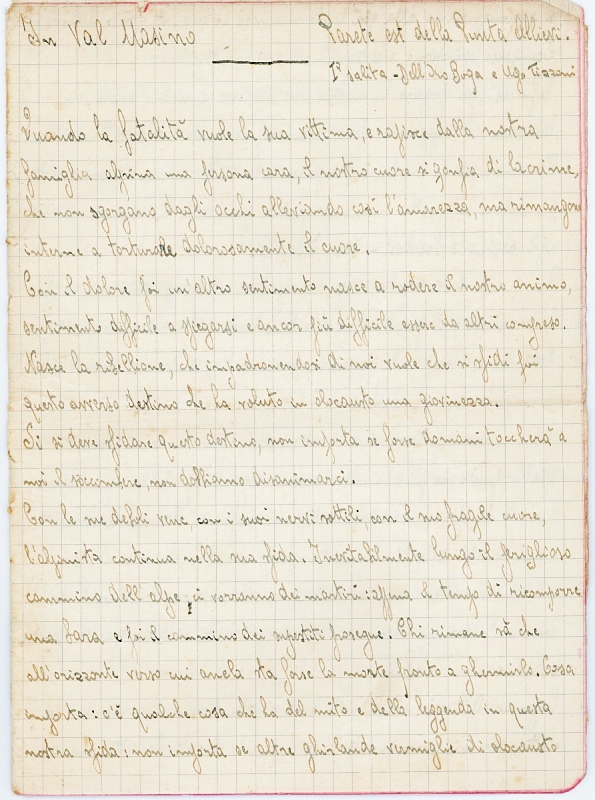 In Val Masino Parete est della Punta Allievi.
Iª salita - Dell'Oro Boga e Ugo Tizzoni
Quando la fatalità vuole la sua vittima, e rapisce dalla nostra
famiglia alpina una persona cara, il nostro cuore si gonfia di lacrime,
che non sgorgano dagli occhi alleviando così l'amarezza, ma rimangono
interne a torturare dolorosamente il cuore.
Con il dolore poi un'altro sentimento nasce a rodere il nostro animo,
sentimento difficile a spiegarsi e ancor più difficile essere da altri compreso.
Nasce la ribellione, che impadronendosi di noi vuole che si sfidi poi
questo avverso destino che ha voluto in olocausto una giovinezza.
Si si deve sfidare questo destino, non importa se forse domani toccherà a
noi il soccombere, non dobbiamo disanimarci.
Con le sue debili vene, con i suoi nervi sottili, con il suo fragile cuore,
l'alpinista continua nella sua sfida. Inevitabilmente lungo il periglioso
cammino dell'alpe, ci vorranno dei martiri: appena il tempo di ricomporre
una bara e poi il cammino dei superstiti prosegue. Chi rimane sà che
all'orizzonte verso cui anela sta forse la morte pronto a ghermirlo. Cosa
importa: c'è qualche cosa che ha del mito e della leggenda in questa
nostra sfida: non importa se altre ghirlande vermiglie di olocausto